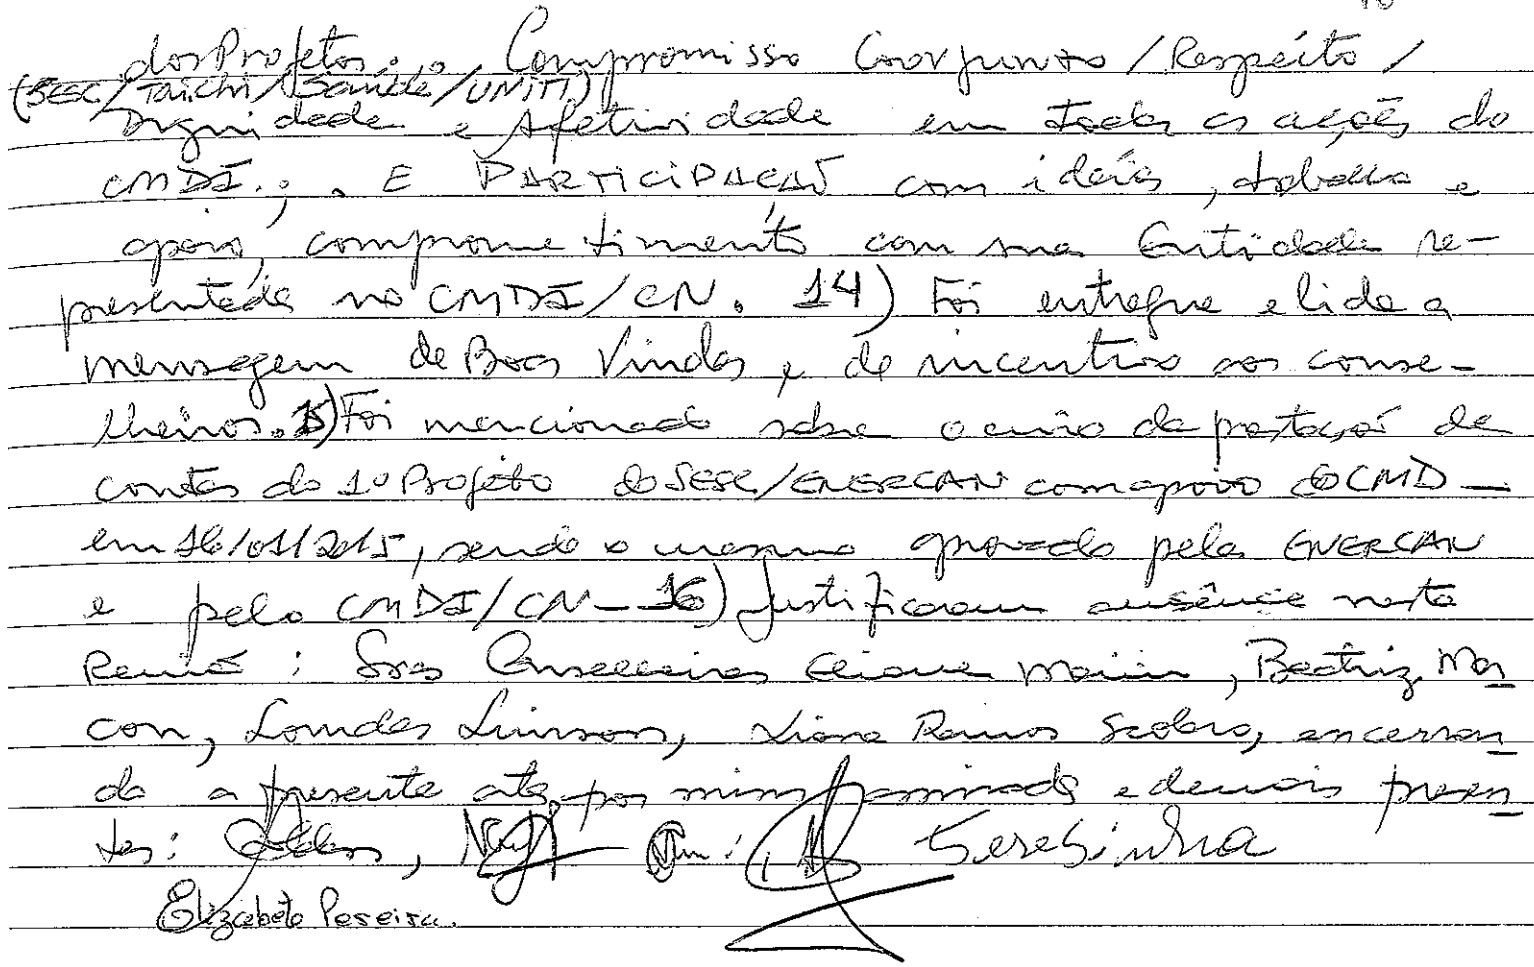 dos Projetos. Compromisso Conjunto / Respeito /
(SESC/Taichi/Saúde/UNITI)
Dignidade e Afetividade em todas as ações do
CMDI.; . E PARTICIPAÇÃO com idéias, trabalho e
apoio, comprometimento com sua Entidade re-
presentada no CMDI/CN. 14) Foi entregue e lida a
mensagem de Boas Vindas e de incentivo aos conse-
lheiros. 15) Foi mencionado sobre o envio da prestação de
contas do 1º Projeto do SESC/ENERCAN com apoio do CMD
em 16/01/2015, sendo o mesmo aprovado pela ENERCAN
e pelo CMDI/CN - 16) Justificaram ausência nesta
Reunião : Sras Conselheiras Eliane, Beatriz Mar
con, Lourdes, Liana Ramos, encerran
do a presente ata, por mim assinada e demais presen
tes: Teresinha
Elizabete Pereira.